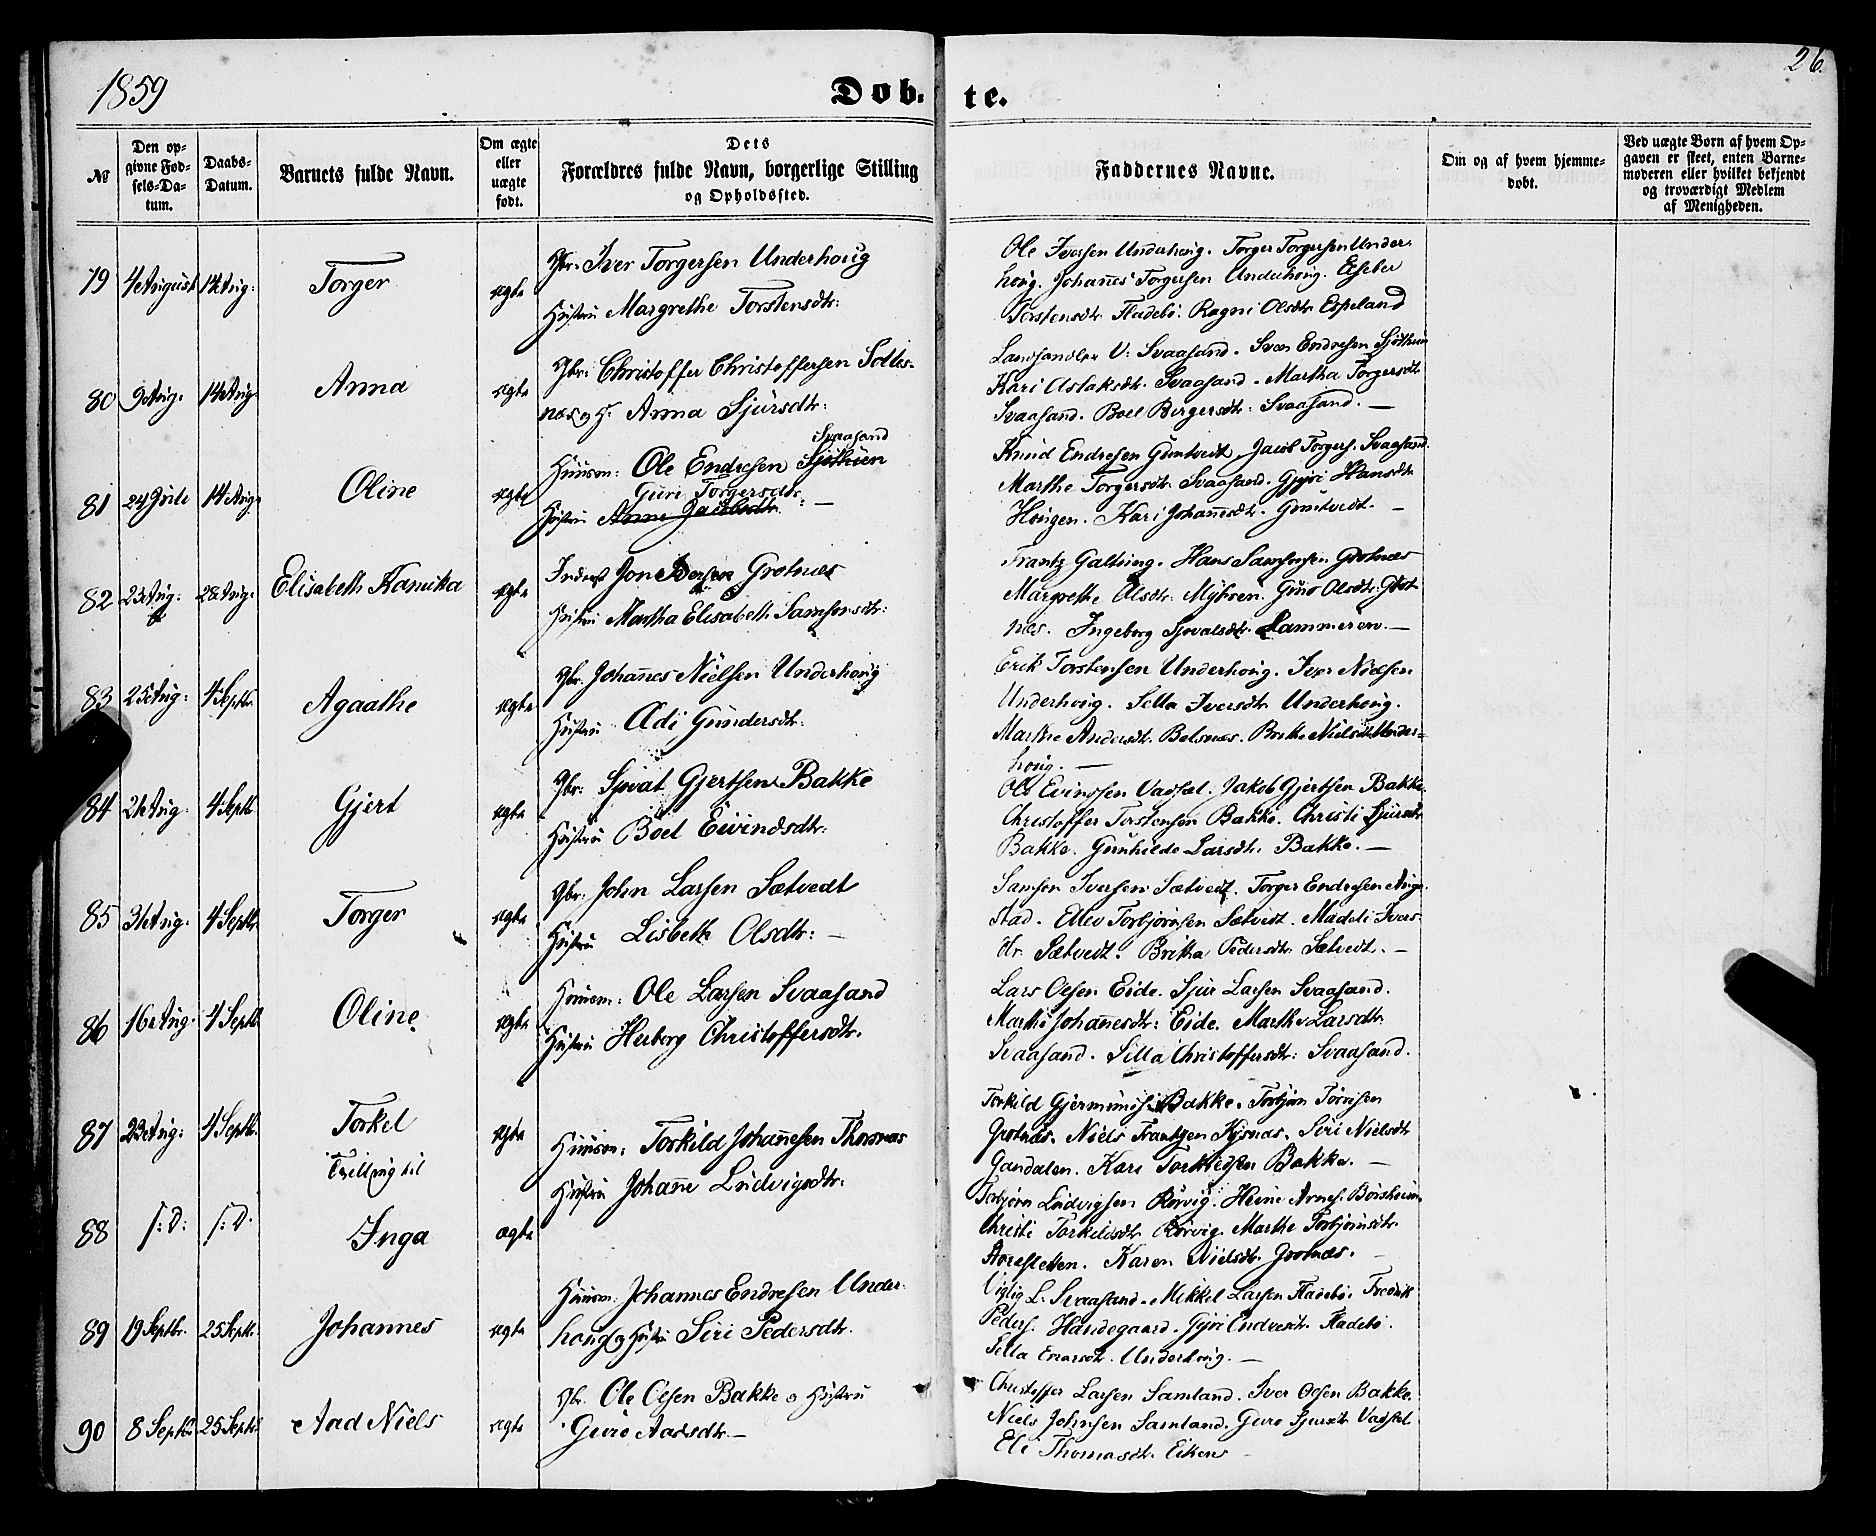 1859
Døb-
te.
26.
№
Den op-
givne Fød-
sels-Da-
tum.
Daabs-
Datum.
Barnets fulde Navn.
Om ægte
eller
uægte
født.
Dets
Forældres fulde Navn, borgerlige Stilling
og Opholdssted.
Faddernes Navne.
Om og af hvem hjemme-
døbt.
Ved uægte Børn af hvem Op-
gaven er skeet, enten Barne-
moderen eller hvilket bekjendt
og troværdigt Medlem
af Menigheden.
79 4 August 14 Aug: Torger ægte
Gbr. Iver Torgersen Underhoug
Hustru Margrethe Torstensdtr:
Ole Iversen Underhoug. Torger Torgersen Under-
houg. Johannes Torgersen Underhoug.
Torstensdtr. Fladebö. Ragni Olsdtr. Espeland
80 9 Aug: 14 Aug: Anna ægte
Gbr: Christoffer Christoffersen Soltes-
næs og H. Anna Sjursdtr:
Landhandler V: Svaasand. Endresen
Kari Aslaksdtr. Svaasand. Martha Torgersdtr
Svaasand. Boel Birgersdtr: Svaasand. —
81 24 Juli 14 Aug: Oline ægte
Svaasand
Huusm: Ole Endresen Sjöthuen
Guri Torgersdtr: —
Hustru Anne Jacobsdtr
Knud Endresen Guntvedt. Jacob Torgers. Svaasand.
Marthe Torgersdtr. Svaasand. Gjyri Hansdtr
Hougen. Kari Johannesdtr. Guntvedt. —
82 23 Aug: 28 Aug: Elisabeth Kamitha ægte
Inderst Jon Grotnæs
Hustru Martha Elisabeth Samsonsdtr:
Frantz Galtung. Hans Samsonsen Grotnæs
Margrethe Olsdtr. Myhren. Guro Olsdtr. Grot-
næs. Ingeborg Lammeren. —
83 25 Aug: 4 Septbr. Agaathe ægte
Gbr. Johannes Nielsen Underhoug
Hustru Adi Gundersdtr:
Erik Torstensen Underhoug. Iver Nielsen
Underhoug. Sella Iversdtr Underhoug.
Marthe Andersdtr. Belsnæs. Brithe Nielsdtr Under-
houg. —
84 21 Aug. 4 Septb. Gjert ægte
Gbr: Sjovat Gjertsen Bakke
Hustru Boel Eivindsdtr:
Ole Evindsen Vadsel. Jakob Gjertsen Bakke.
Christoffer Torstensen Bakke. Christi Sjursdtr
Bakke. Gunhilde Larsdtr. Bakke. —
85 31 Aug. 4 Septbr. Torger ægte
Gbr: John Larsen Sætvedt
Hustru Lisbeth Olsdtr: —
Samson Iversen Sætvedt. Torger Endresen Auge-
stad. Ellev Torbjörnsen Sætvedt. Maddeli Ivers-
dtr. Sætvedt. Britha Pedersdtr. Sætvedt. —
86 16 Aug. 4 Septb. Oline ægte
Huusm: Ole Larsen Svaasand
Hustru Herborg Christoffersdtr.
Lars Olsen Eide. Sjur Larsen Svaasand.
Marthe Johannesdtr: Eide. Marthe Larsdtr:
Svaasand. Sella Christoffersdtr: Svaasand.
87 23 Aug: 4 Septbr. Torkel ægte
Tvilling til
Huusm: Torkild Johannesen Thornæs
Hustru Johanne Ludvigsdtr:
Torkild Bakke. Torbjörn
Grotnæs. Niels Frantzen Kysnæs. Siri Nielsdtr
Gandalen. Kari Bakke. —
88 s: D: s: D: Inga ægte
Torbjörn Ludvigsen Rörvig. Heine Arnes. Börsheim,
Christi Torkildsdtr Rörvig. Marthe Torbjörnsdtr.
Karen Nielsdtr. Grotnæs. —
89 19 Septbr. 25 Septb. Johannes ægte
Huusm. Johannes Endresen Under-
houg og Hustru Siri Pedersdtr.
L. Svaasand. Mikkel Larsen Fladebö. Fredrik
Peders. Handegaard. Gjyri Endresdtr. Fladebö.
Sella Underhoug. —
90 8 Septbr 25 Septb. Aad Niels ægte
Gbr. Ole Olsen Bakke og Hustru
Guro Aadsdtr. —
Christoffer Larsen Samland. Iver Olsen Bakke.
Niels Johnsen Samland. Guro Sjursdtr Vadsel
Eli Thomasdtr. Eikenes